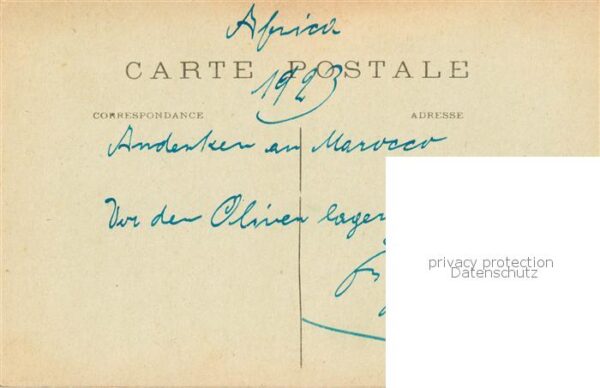 Africa
CARTE POSTALE
1923
CORRESPONDANCE
ADRESSE
Andenken an Marocco
Vor den Oliven lager
privacy protection
Datenschutz